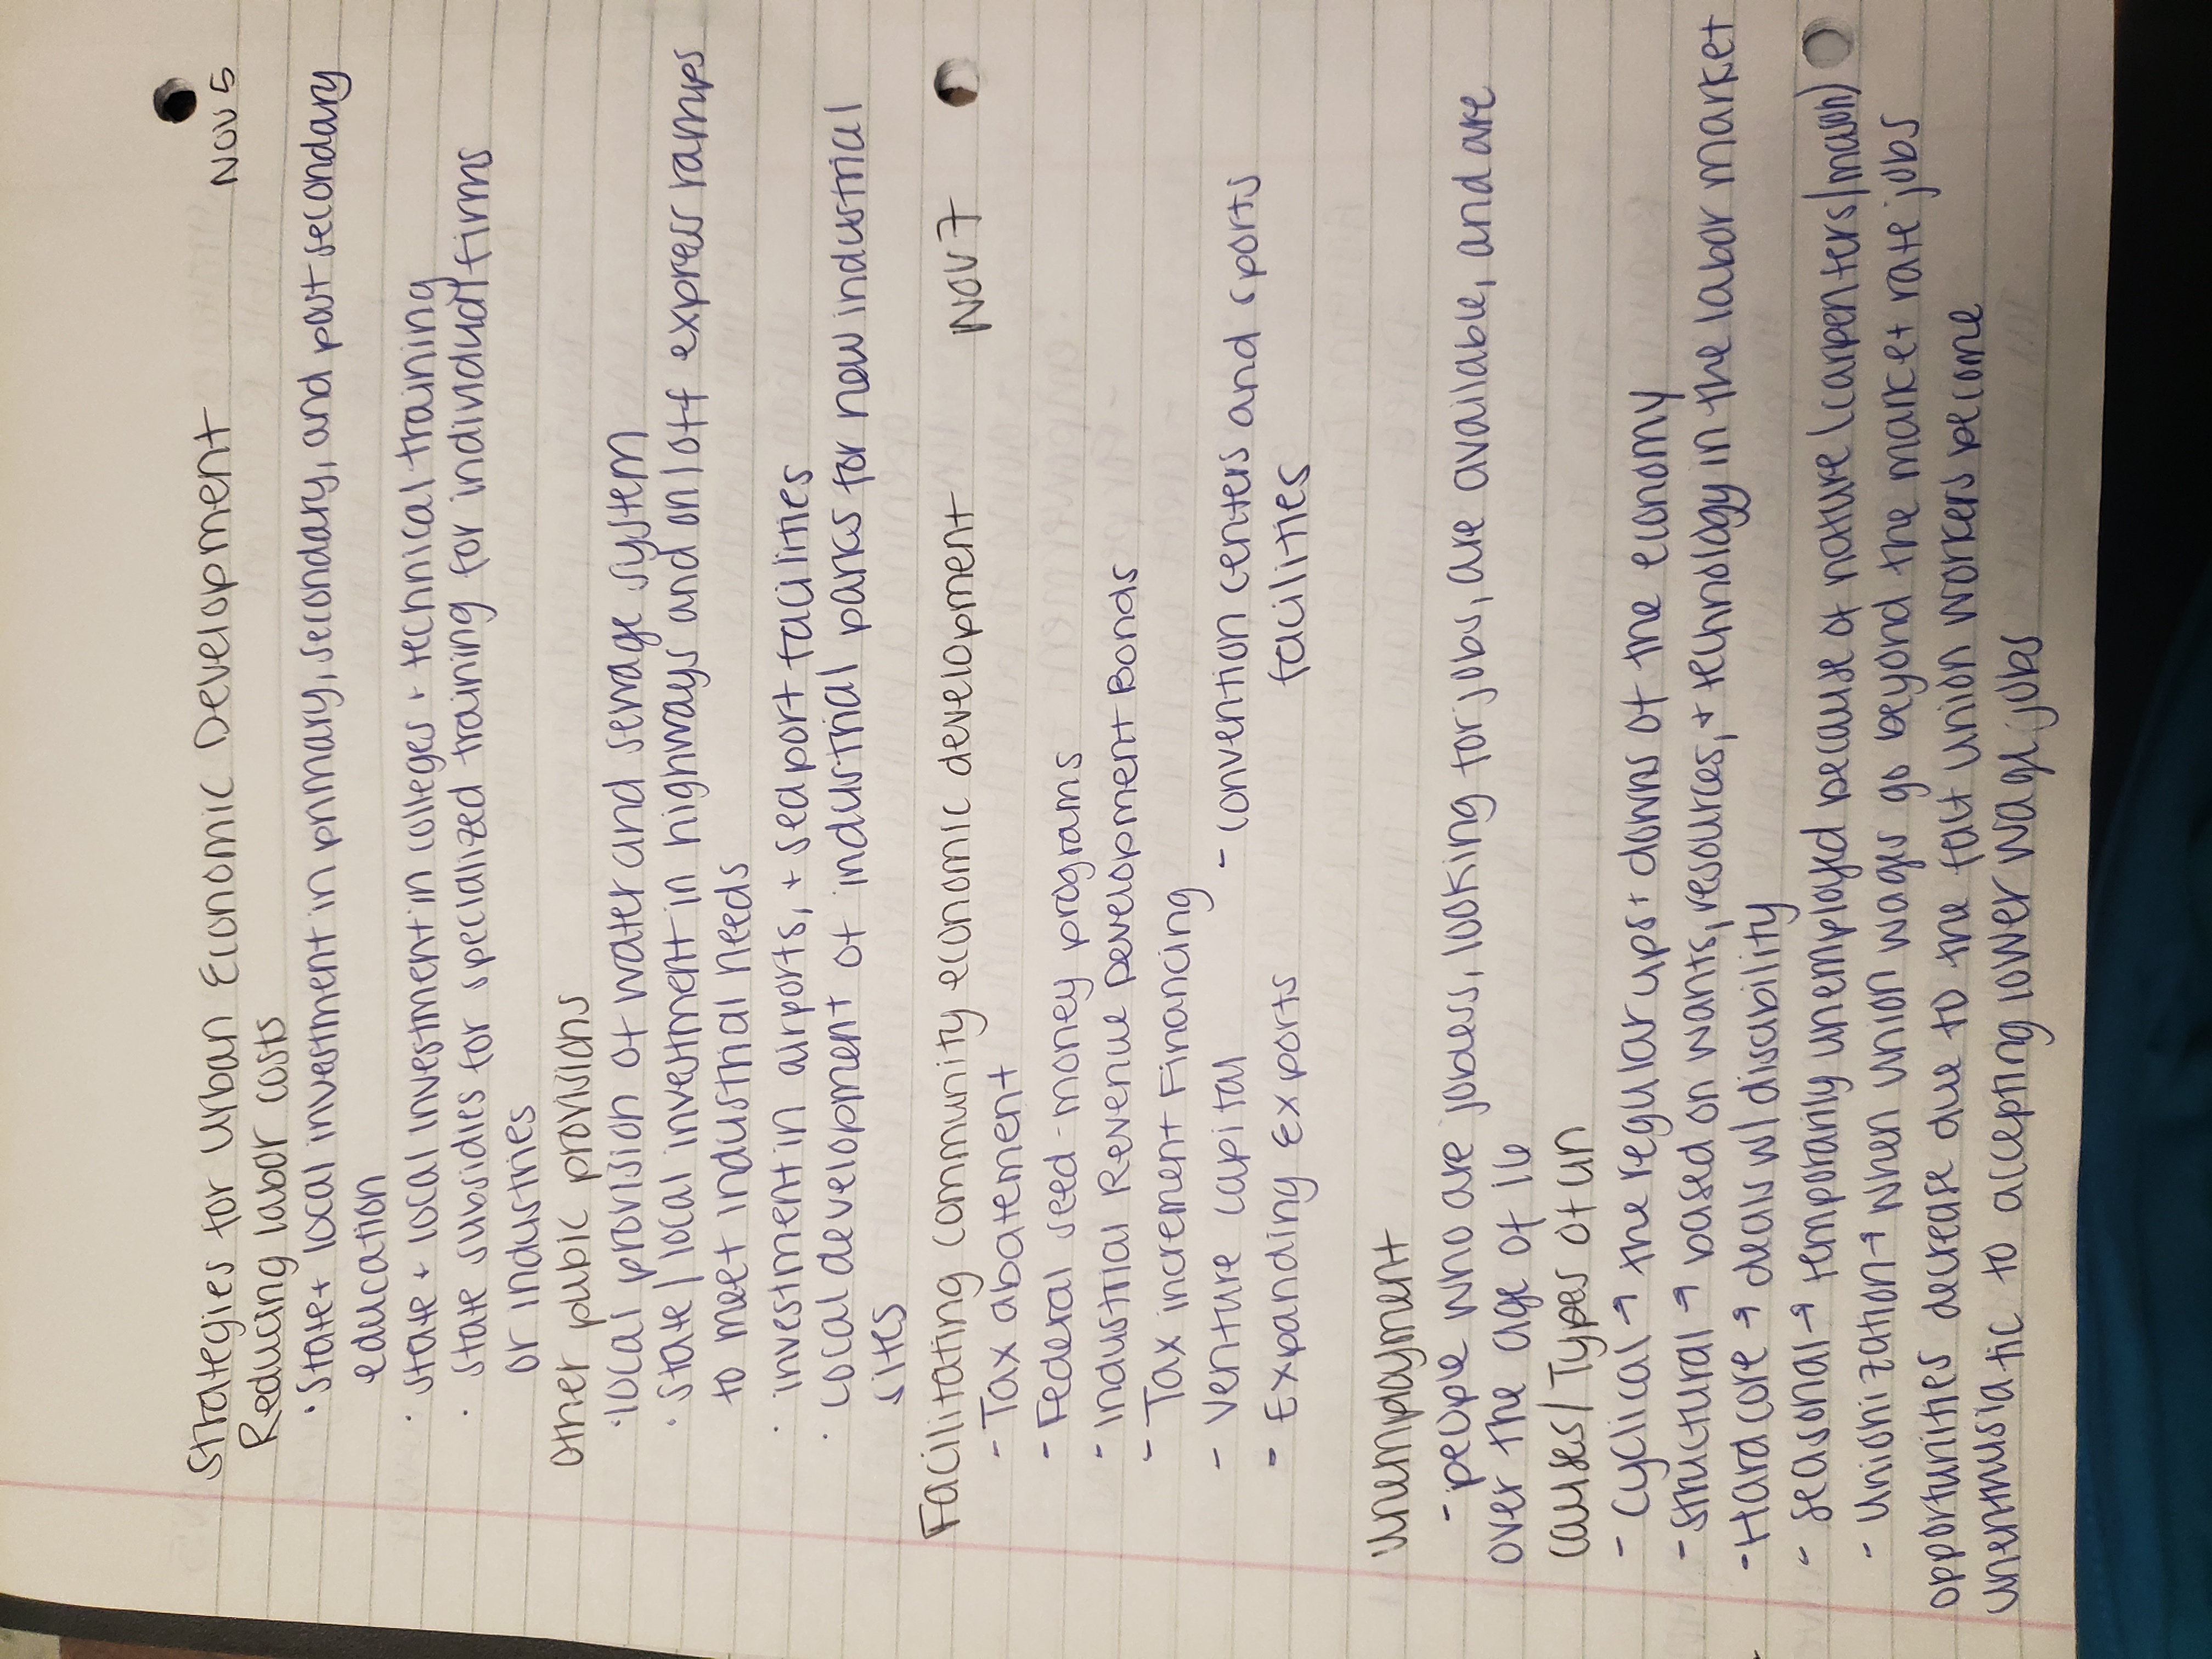 Strategies for Urban Economic Development Nov 5
Reducing labor costs
· State + local investment in primary, secondary, and post secondary
education
· State + local investment in colleges + technical training
· State subsidies for specialized training for individual firms
or industries
Other pubic provisions
· local provision of water and sewage system
· State / local investment in highways and on/off express ramps
to meet industrial needs
· investment in airports, + seaport facilities
· Local development of industrial parks for new industrial
sites
Facilitating community economic development Nov 7
- Tax abatement
- Federal seed-money programs
- Industrial Revenue Development Bonds
- Tax increment Financing
- Venture capital - convention centers and sports
- Expanding Exports facilities
Unemployment
- people who are jobless, looking for jobs, are available, and are
over the age of 16
Causes/Types of un
- Cyclical → the regular ups + downs of the economy
- Structural → based on wants, resources, + technology in the labor market
- Hardcore → deals w/ disability
- Seasonal → temporarily unemployed because of nature (carpenters/mason)
- Unionization → when union wages go beyond the market rate jobs
opportunities decrease due to the fact union workers become
unenthusiatic to accepting lower wage jobs